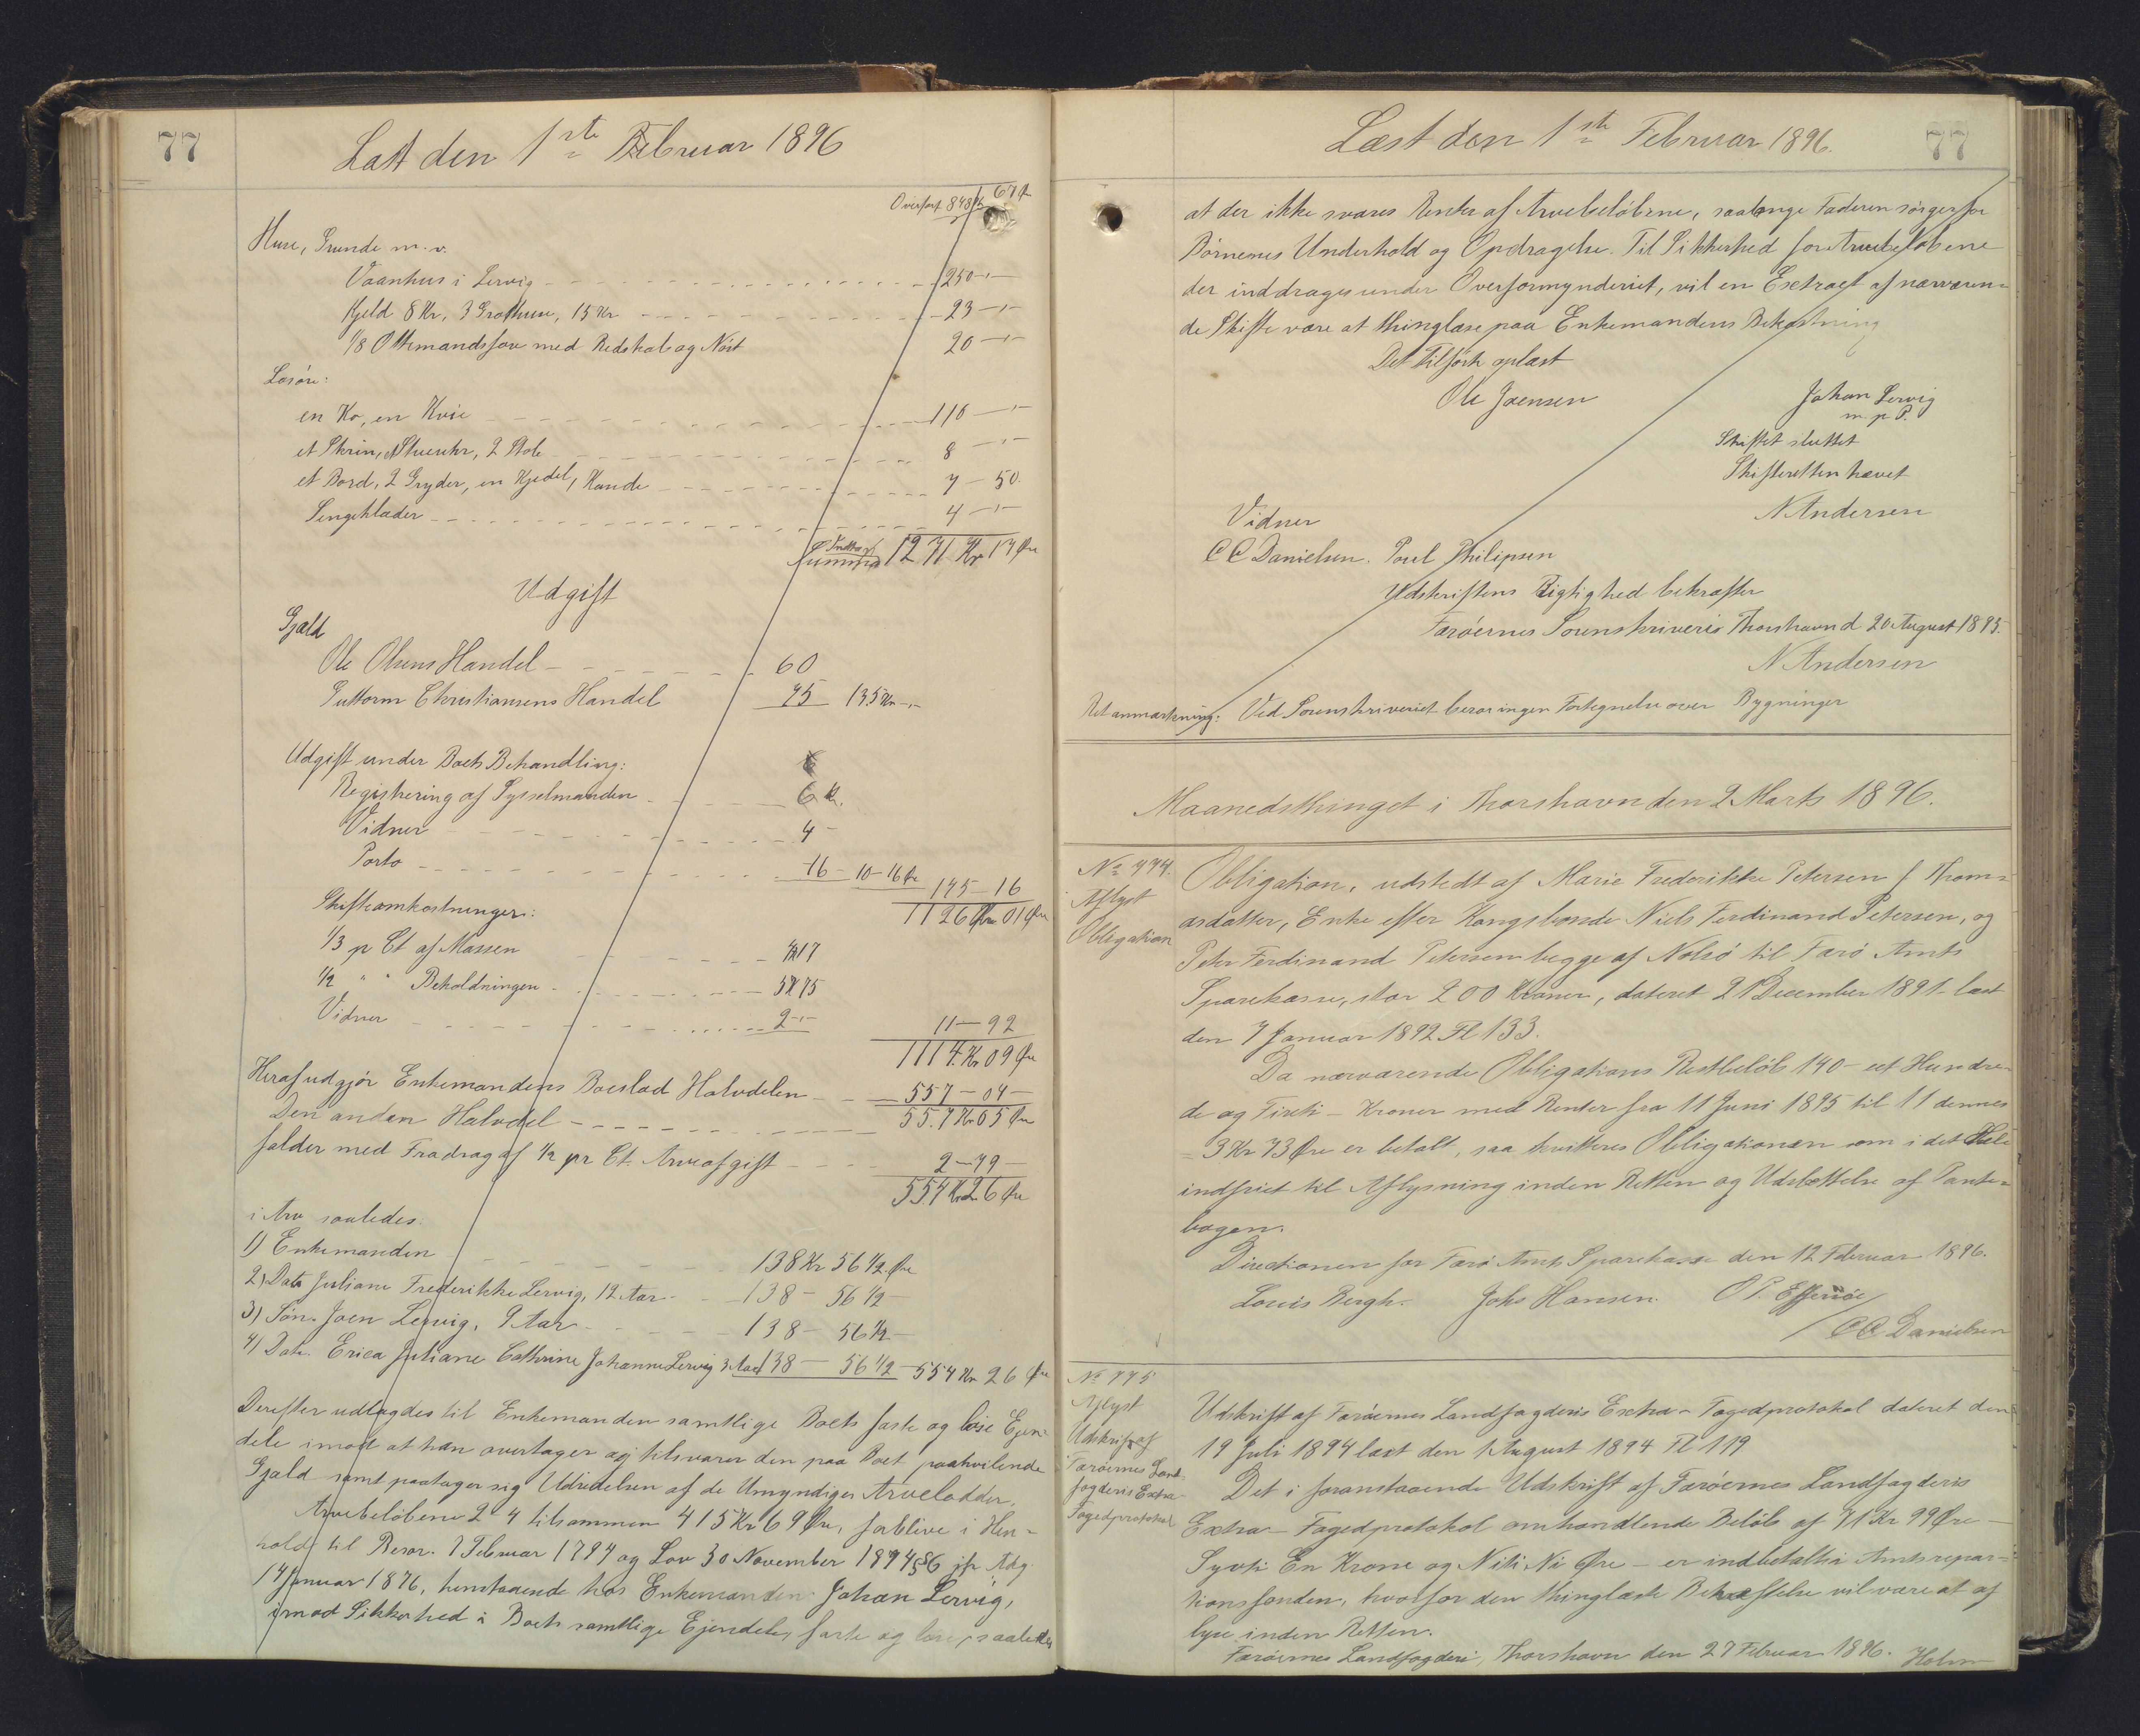 77
Læst den 1ste Februar 1896
Overført 848 Kr 67 Ør
Huse, Grunde m. v.
Vaanhus i Lervig 250 -"-
Hjeld 8 Kr, 3 Grothuse, 15 Kr 23 -"-
1/8 Ottemandsfar med Redskab og Nøst 20 -"-
Løsøre:
en Ko, en Kvie 110 -"-
et Skrin, Stueuhr, 2 Stole 8 -"-
et Bord, 2 Gryder, en Kjedel, Kande 7 - 50
Sengeklæder 4 -"-
Summa Indtægt 1271 Kr 17 Øre
Udgift
Gjæld
Ole Olsens Handel 60
Guttorm Christiansens Handel 75 135 Kr -"-
Udgift under Boets Behandling:
Registrering af Sysselmanden 6 Kr.
Vidner 4 -
Porto 16 - 10 - 16 Øre 145 - 16
1126 Kr 01 Øre
Skifteomkostninger:
1/3 p Ct af Massen 4 17
1/2 " " Beholdningen 5 75
Vidner 2 -"-
11 - 92
1114 Kr 09 Øre
Heraf udgjør Enkemandens Boeslod Halvdelen 557 - 04 -
Den anden Halvdel 557 Kr 05 Øre
falder med Fradrag af 1/2 pr Ct. Arveafgift 2 - 79 -
554 Kr 26 Øre
i Arv saaledes:
1) Enkemanden 138 Kr 56 1/2 Øre
2) Datr Juliane Frederikke Lervig, 12 Aar 138 - 56 1/2 -
3) Søn. Joen Lervig, 9 Aar 138 - 56 1/2 -
4) Datr. Erica Juliane Cathrine Johanne Lervig 3 Aar 138 - 56 1/2 - 554 Kr 26 Øre
Derefter udlagdes til Enkemanden samtlige Boets faste og løse Ejen-
dele imod at han overtager og tilsvarer den paa Boet paahvilende
Gjæld samt paatager sig Udredelsen af de Umyndiges Arvelodder.
Arvebeløbene 2 - 4 tilsammen 415 Kr 69 Øre, forblive i Hen-
hold til Resor. 7 Februar 1794 og Lov 30 November 1874 § 6 jfr Adg.
14 Januar 1876, henstaaende hos Enkemanden Johan Lervig,
imod Sikkerhed i Boets samtlige Ejendele, faste og løse, saaledes
Læst den 1ste Februar 1896.
77
at der ikke svares Renter af Arvebeløbene, saalænge Faderen sørger for
Børnenes Underhold og Opdragelse. Til Sikkerhed for Arvebeløbene
der inddrages under Overformynderiet, vil en Extract af nærværen-
de Skifte være at thinglæse paa Enkemandens Bekostning
Det Tilførte oplæst
Ole Joensen Johan Lervig
m. p. P.
Skiftet sluttet
Skifteretten hævet
N Andersen
Vidner
C C Danielsen. Poul Philipsen
Udskriftens Rigtighed bekræfter
Færøernes Sorenskriveri Thorshavn d 20 August 1895.
N Andersen
Retanmærkning: Ved Sorenskriveriet beror ingen Fortegnelse over Bygninger
Maanedsthinget i Thorshavn den 2 Marts 1896.
No 774.
Aflyst
Obligation
Obligation, udstedt af Marie Frederikke Petersen f. Thom-
asdatter, Enke efter Kongsbonde Niels Ferdinand Petersen, og
Peter Ferdinand Petersen begge af Nolsø til Færø Amts
Sparekasse, stor 200 Kroner, dateret 21 December 1891 læst
den 7 Januar 1892 Fl 133.
Da nærværende Obligations Restbeløb 140 - et Hundre-
de og Firti - Kroner med Renter fra 11 Juni 1895 til 11 dennes
= 3 Kr 73 Øre er betalt, saa kvitteres Obligationen som i det Hele
indfriet til Aflysning inden Retten og Udslettelse af Pante-
bogen.
Directionen for Færø Amts Sparekasse den 12 Februar 1896.
Louis Bergh. Johs Hansen. O P. Effersøe
/ C C Danielsen
No 775
Aflyst
Udskrift af
Færøernes Land-
fogderis Extra-
Fogedprotokol
Udskrift af Færøernes Landfogderis Extra - Fogedprotokol dateret den
19 Juli 1894 læst den 1 August 1894 Fl 119
Det i foranstaaende Udskrift af Færøernes Landfogderis
Extra - Fogedprotokol omhandlende Beløb af 71 Kr 99 Øre -
Syvti En Krone og Niti Ni Øre - er indbetalt i Amtsrepar-
tionsfonden, hvorfor den thinglæste Bekræftelse vil være at af
lyse inden Retten.
Færøernes Landfogderi, Thorshavn den 27 Februar 1896. Holm